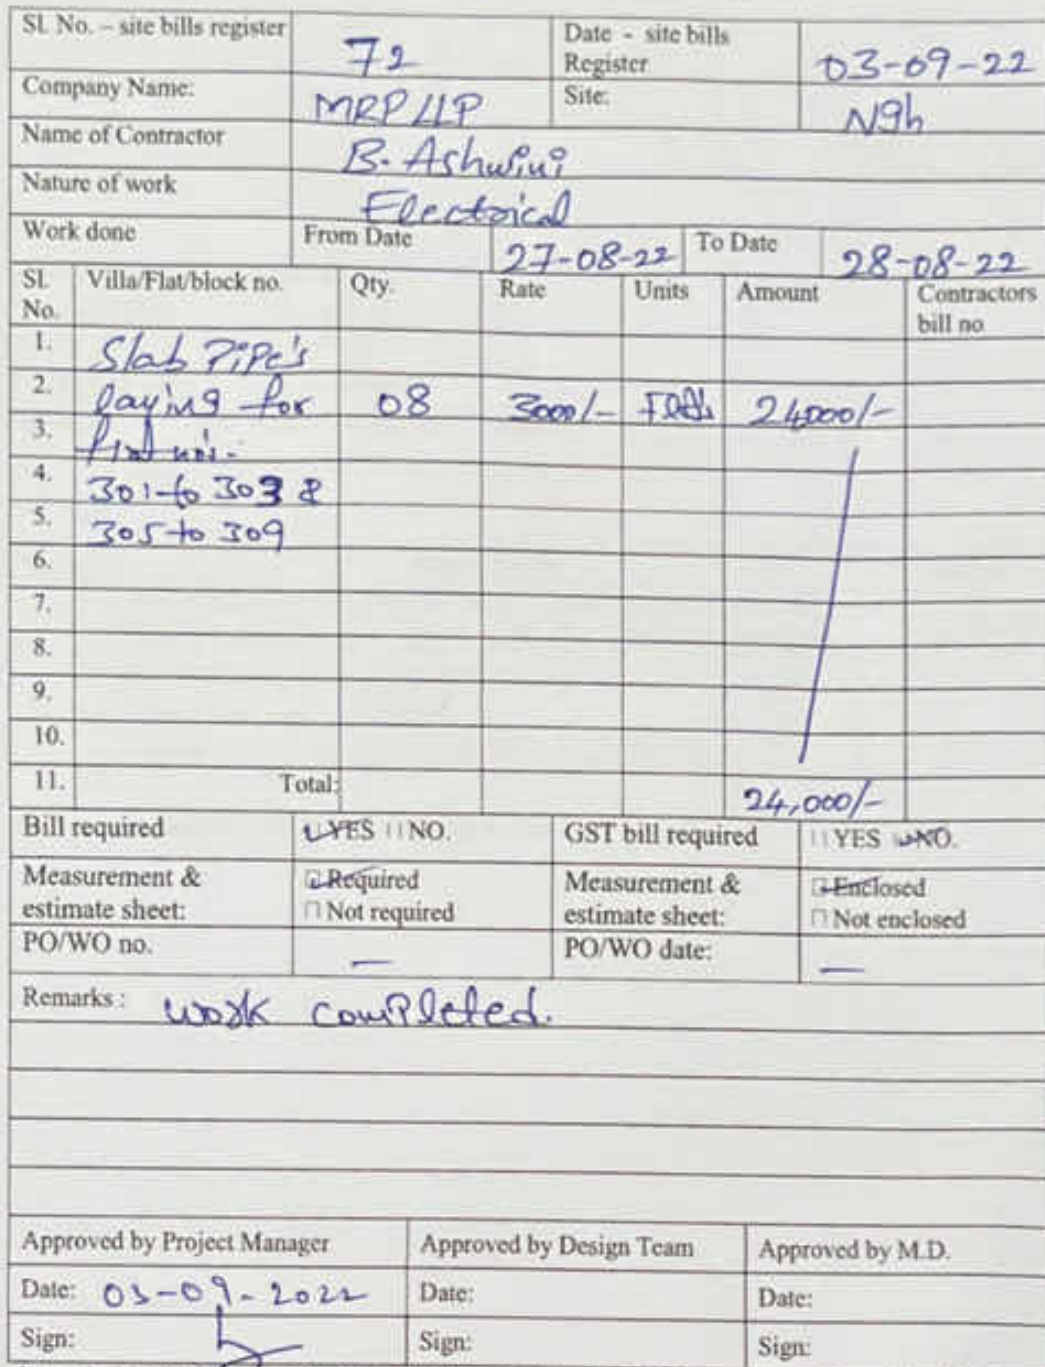 Sl. No. – site bills register 72 Date - site bills Register 03-09-22
Company Name: MRP LLP Site: Ngh
Name of Contractor B. Ashwini
Nature of work Electrical
Work done From Date 27-08-22 To Date 28-08-22
Sl. No. Villa/Flat/block no. Qty. Rate Units Amount Contractors bill no
1. Slab Pipe's
2. laying for 08 3000/- 24000/-
3.
4. 301 to 303 &
5. 305 to 309
6.
7.
8.
9.
10.
11. Total: 24,000/-
Bill required YES NO. GST bill required YES NO.
Measurement & estimate sheet: Required Not required Measurement & estimate sheet: Enclosed Not enclosed
PO/WO no. — PO/WO date: —
Remarks : work completed.
Approved by Project Manager Approved by Design Team Approved by M.D.
Date: 03-09-2022 Date: Date:
Sign: Sign: Sign: